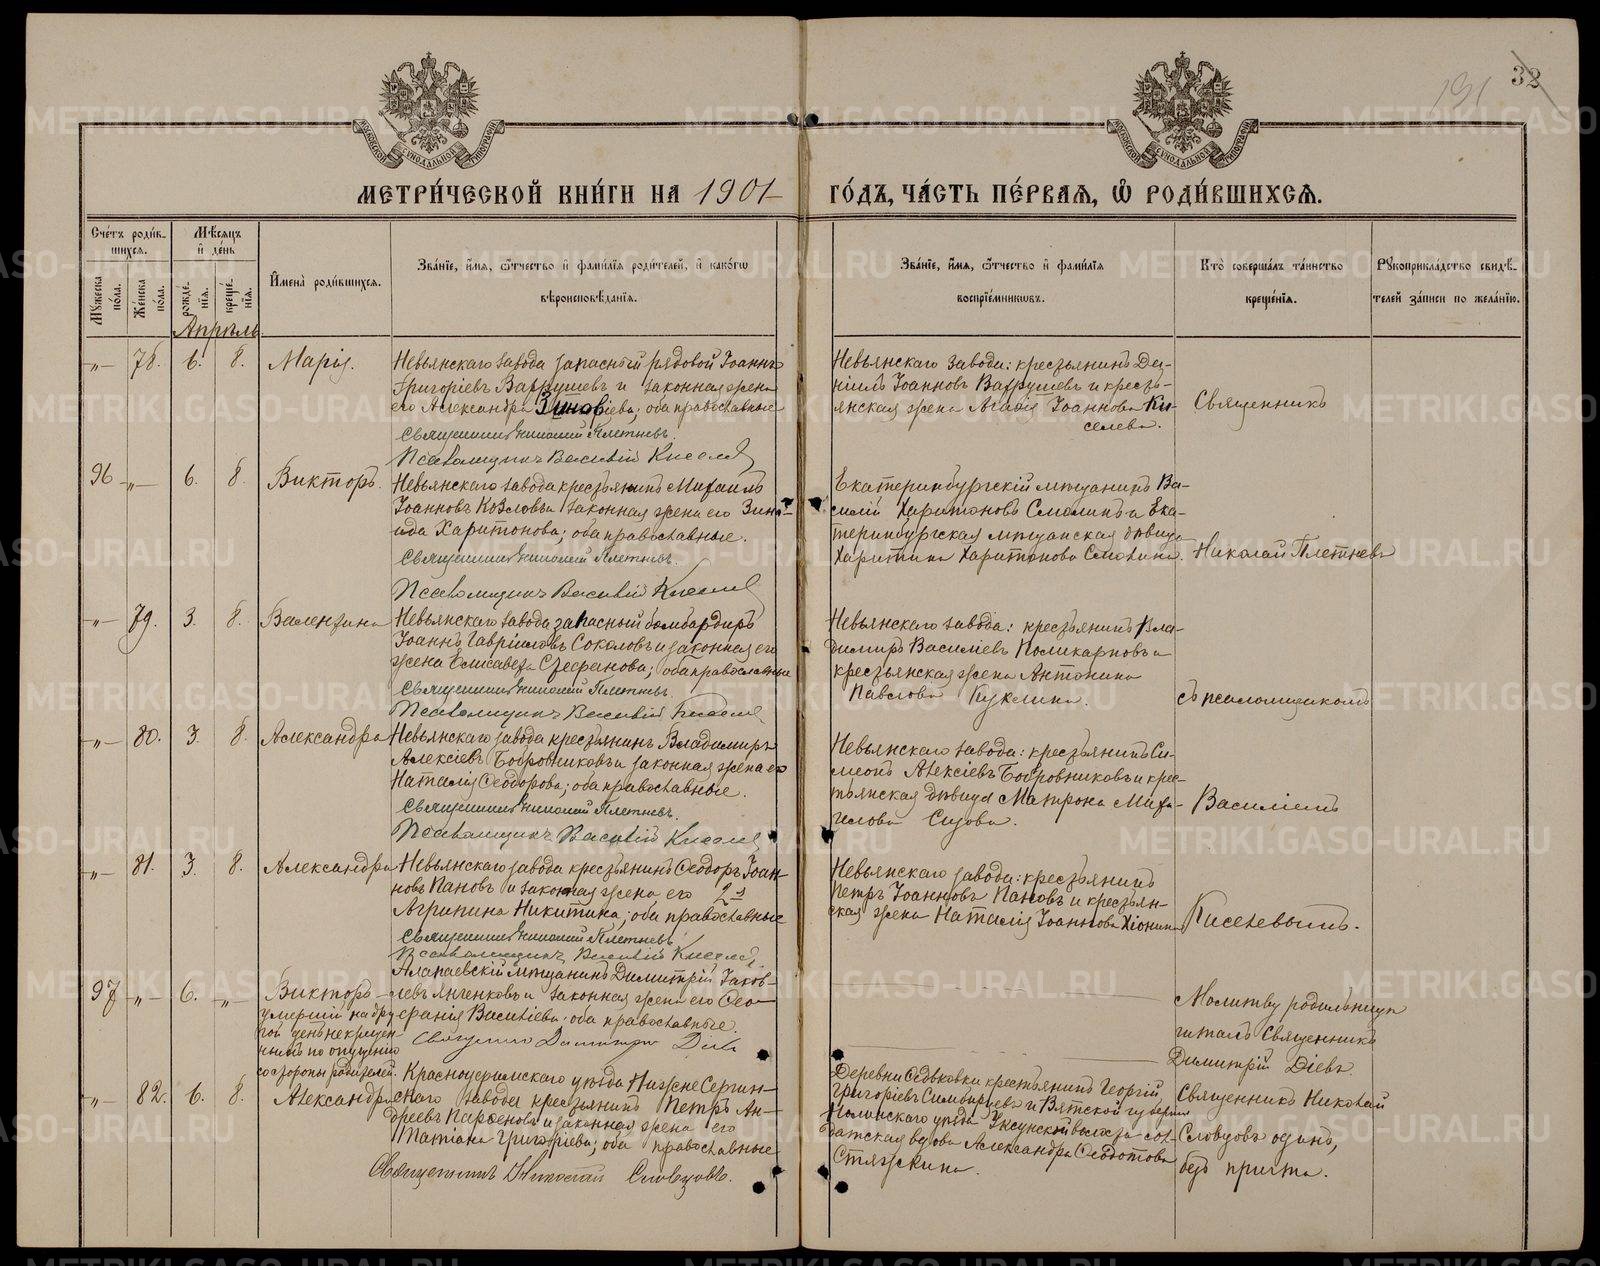 32
191
МЕТРИ́ЧЕСКОЙ КНИ́ГИ НА 1901
ГО́ДЪ, ЧА́СТЬ ПЕ́РВАЯ, Ѡ РОДИ́ВШИХСЯ.
Сче́тъ роди́в-
шихся.
Мѣ́сяцъ
и де́нь
Му́жеска по́ла.
Же́нска по́ла.
рожде́-
нія.
креще́-
нія.
Имена̀ роди́вшихся.
Зва́ніе, и́мя, о́тчество и фами́лія роди́телей, и како́гѡ
вѣроисповѣ́данія.
Зва́ніе, и́мя, о́тчество и фами́лія
воспрі́емниковъ.
Кто̀ соверша́лъ та́инство
креще́нія.
Рукоприкла́дство свидѣ́-
телей за́писи по жела́нію.
Апрѣль
-„- 78. 6. 8. Марія.
Невьянскаго завода запасный рядовой Іоаннъ
Григоріевъ Вахрушевъ и законная жена
его Александра Зиновіева; оба православные
Священникъ Николай Плетневъ.
Псаломщикъ Василій Киселев
Невьянскаго завода: крестьянинъ Да-
ніилъ Іоанновъ Вахрушевъ и кресть-
янская жена Агафія Іоаннова Ки-
селева.
Священникъ
96 -„- 6. 8. Викторъ.
Невьянскаго завода крестьянинъ Михаилъ
Іоанновъ Козловъ и законная жена его Зина-
ида Харитонова; оба православные.
Священникъ Николай Плетневъ.
Псаломщикъ Василій Киселев
Екатеринбургскій мѣщанинъ Ва-
силій Харитоновъ Смолинъ и Ека-
теринбургская мѣщанская дѣвица
Харитина Харитонова Смолина.
Николай Плетневъ
-„- 79. 3. 8. Валентина
Невьянскаго завода запасный бомбардиръ
Іоаннъ Гавріиловъ Соколовъ и законная его
жена Елисавета Стефанова; оба православные
Священникъ Николай Плетневъ.
Псаломщикъ Василій Киселев
Невьянскаго завода: крестьянинъ Вла-
димиръ Василіевъ Поликарповъ и
крестьянская жена Антонина
Павлова Куклина.
съ псаломщикомъ
-„- 80. 3. 8. Александра
Невьянскаго завода крестьянинъ Владимиръ
Алексіевъ Бобровниковъ и законная жена его
Наталія Ѳеодорова; оба православные.
Священникъ Николай Плетневъ.
Псаломщикъ Василій Киселев
Невьянскаго завода: крестьянинъ Си-
меонъ Алексіевъ Бобровниковъ и крес-
тьянская дѣвица Матрона Миха-
илова Сизова.
Василіемъ
-„- 81. 3. 8. Александра
Невьянскаго завода крестьянинъ Ѳеодоръ Іоан-
новъ Пановъ и законная жена его
Агрипина Никитина; оба православные
Священникъ Николай Плетневъ
Псаломщикъ Василій Киселев
Невьянскаго завода: крестьянинъ
Петръ Іоанновъ Пановъ и крестьян-
ская жена Наталія Іоаннова Хіонина
Киселевымъ.
97 -„- 6. -„- Викторъ -
умершій на дру-
гой день некрещен-
нымъ по опущенію
со стороны родителей.
Алапаевскій мѣщанинъ Димитрій Іаков-
левъ Янченковъ и законная жена его Ѳео-
фанія Василіева; оба православные.
Священникъ Димитрій Діевъ
Молитву родильницѣ
читалъ Священникъ
Димитрій Діевъ.
-„- 82. 6. 8. Александра
Красноуфимскаго уѣзда Нижне Сергин-
скаго завода крестьянинъ Петръ Ан-
дреевъ Парѳеновъ и законная жена его
Татіана Григоріева; оба православные
Священникъ Николай Словцовъ.
Деревни Ѳедьковки крестьянинъ Георгій
Григоріевъ и Вятской губерніи
Нолинскаго уѣзда волости сол-
датская вдова Александра Ѳеодотова
Стяжкина.
Священникъ Николай
Словцовъ одинъ,
безъ причта.
METRIKI.GASO-URAL.RU